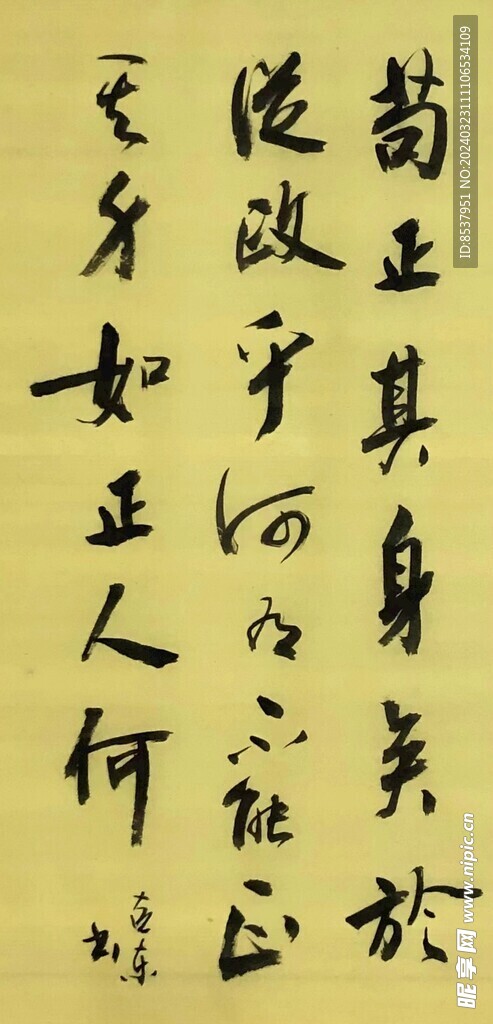 苟正其身矣於
從政乎何有不能正
其身如正人何
ID:8537951 NO:20240323111106534109
昵享网 www.nipic.cn